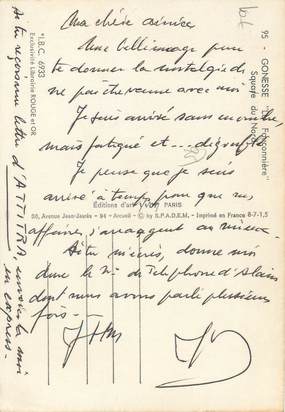 Ma chère aimée
Une belle image pour
te donner la nostalgie de
ne pas être venue avec moi.
Je suis arrivé sans encombre,
mais fatigué et
Je pense que je suis
arrivé à temps pour que nos
affaires s'arrangent au mieux.
As tu m'écris, donne moi
donc le N° de téléphone d'Alain
dont nous avons parlé plusieurs
fois -
As tu reçu lettre d'ATTITRA, envoie la moi
en express -
95 - GONESSE "La Fauconnière"
Square du Nord
"I.B.C. 6933
Exclusivité Librairie ROUGE et OR
Éditions d'art YVON PARIS
50, Avenue Jean-Jaurès - 94 - Arcueil - © by S.P.A.D.E.M. - Imprimé en France 8-7-1,5